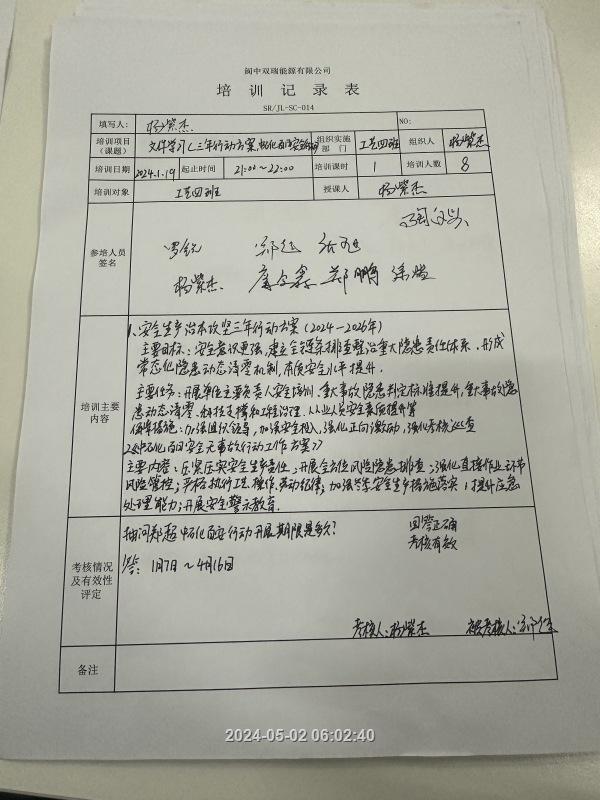 阆中双瑞能源有限公司
培训记录表
SR/JL-SC-014
填写人: 杨紫杰 NO:
培训项目(课题) 文件学习(三年行动方案、中石化百日安全 组织实施部门 工艺四班 组织人 杨紫杰
培训日期 2024.1.19 起止时间 21:00~22:00 培训课时 1 培训人数 8
培训对象 工艺四班 授课人 杨紫杰
参培人员签名
罗锐 郑超 张旭
杨紫杰 郑鹏
培训主要内容
1、安全生产治本攻坚三年行动方案(2024-2026年)
主要目标:安全意识更强,建立全链条排查整治重大隐患责任体系、形成
常态化隐患动态清零机制,本质安全水平提升.
主要任务:开展单位主要负责人安全培训、重大事故隐患判定标准提升,重大事故隐
患动态清零、科技支撑和工程治理、从业人员安全素质提升等
保障措施:加强组织领导,加强安全投入,强化正向激励,强化考核巡查
2《中石化百日安全无事故行动工作方案》
主要内容:压紧压实安全生产责任;开展全方位风险隐患排查;强化直接作业环节
风险管控;严格执行工艺、操作、劳动纪律;加强冬季安全生产措施落实;提升应急
处理能力;开展安全警示教育.
考核情况及有效性评定
抽问郑超 中石化百安行动开展期限是多久? 回答正确
答:1月7日~4月16日 考核有效
考核人:杨紫杰 被考核人:郑超
备注
2024-05-02 06:02:40